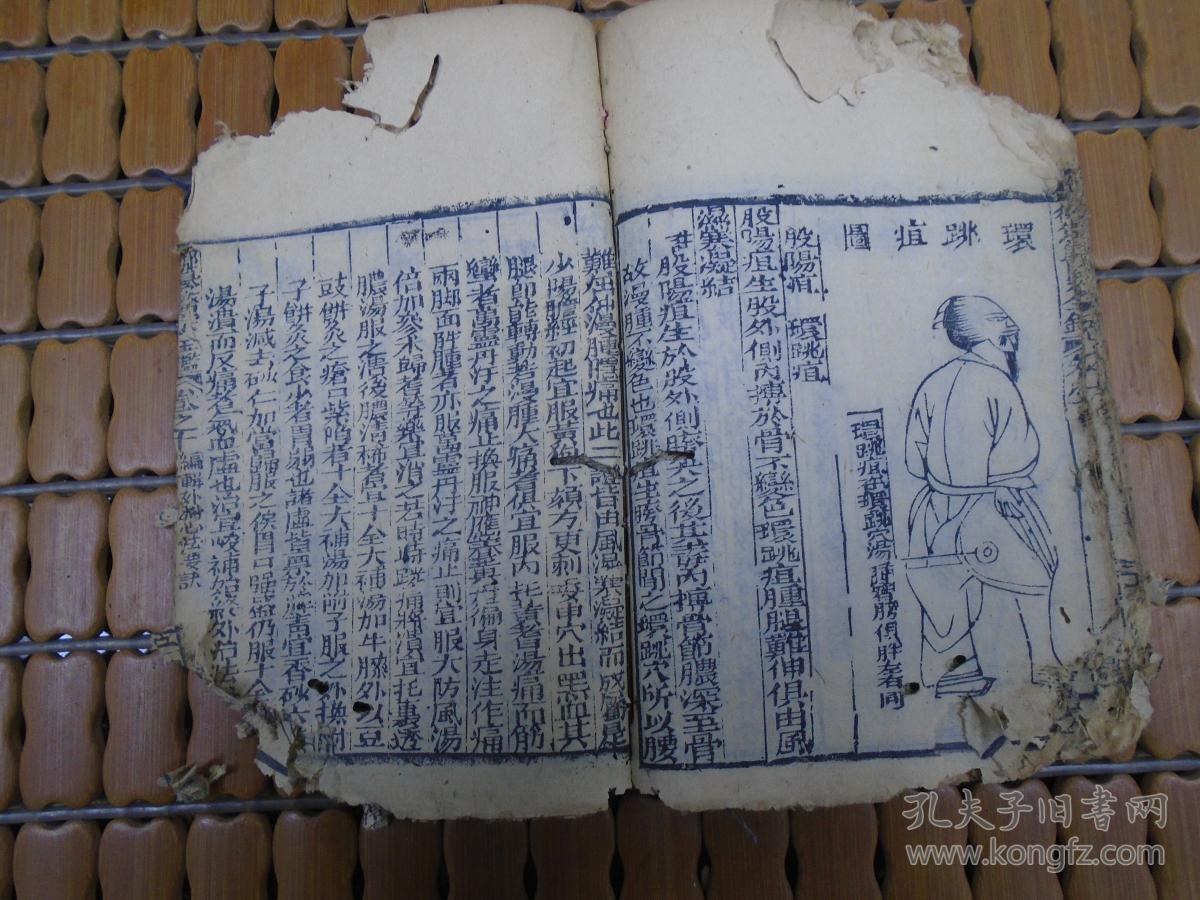 環跳疽圖
環跳疽
股陽疽 環跳疽
股陽疽生股外側內搏於骨不變色環跳疽腫腿難伸俱由風
濕寒凝結
註股陽疽生於股外側胯尖之後此證內搏骨節膿深至骨
故漫腫不變色也環跳疽生胯骨節間之環跳穴所以腰
難屈伸漫腫隱痛也此二證皆由風濕寒凝結而成屬足
少陽膽經初起宜服黃狗下頦方更刺委中穴出黑血其
腿即能轉動若漫腫大痛者俱宜服內托黃耆湯痛而筋
攣者萬靈丹汗之痛止換服神應養真丹遍身走注作痛
兩脚面胖腫者亦服萬靈丹汗之痛止則宜服大防風湯
倍加參朮歸耆等藥宜消之若時時跳痛將潰宜托裏透
膿湯服之潰後膿清稀者宜十全大補湯加牛膝外以豆
豉餅灸之瘡口紫陷者十全大補湯加附子服之外換附
子餅灸之食少者胃弱也諸虛皆稟於脾胃宜香砂六君
子湯減去砂仁加當歸服之俟胃口强盛仍服十全
湯潰而反痛氣血虛也治宜峻補始終外治
卷之十 編輯外科心法要訣
孔夫子旧书网
www.kongfz.com